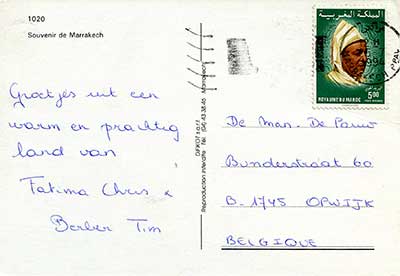 1020
Souvenir de Marrakech
Groetjes uit een
warm en prachtig
land van
Fatima Chris &
Berber Tim
Reproduction interdite Tél. (04) 43.38.45 Marrakech
المملكة المغربية
5,00
ROYAUME DU MAROC
De Man. De Pauw
Bunderstraat 60
B-1745 OPWIJK
BELGIQUE